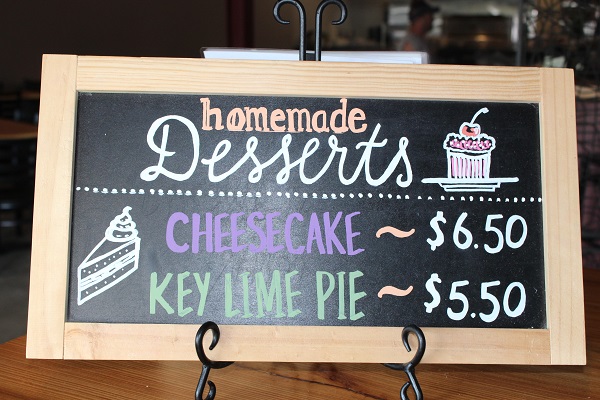 homemade
Desserts
CHEESECAKE ~ $6.50
KEY LIME PIE ~ $5.50